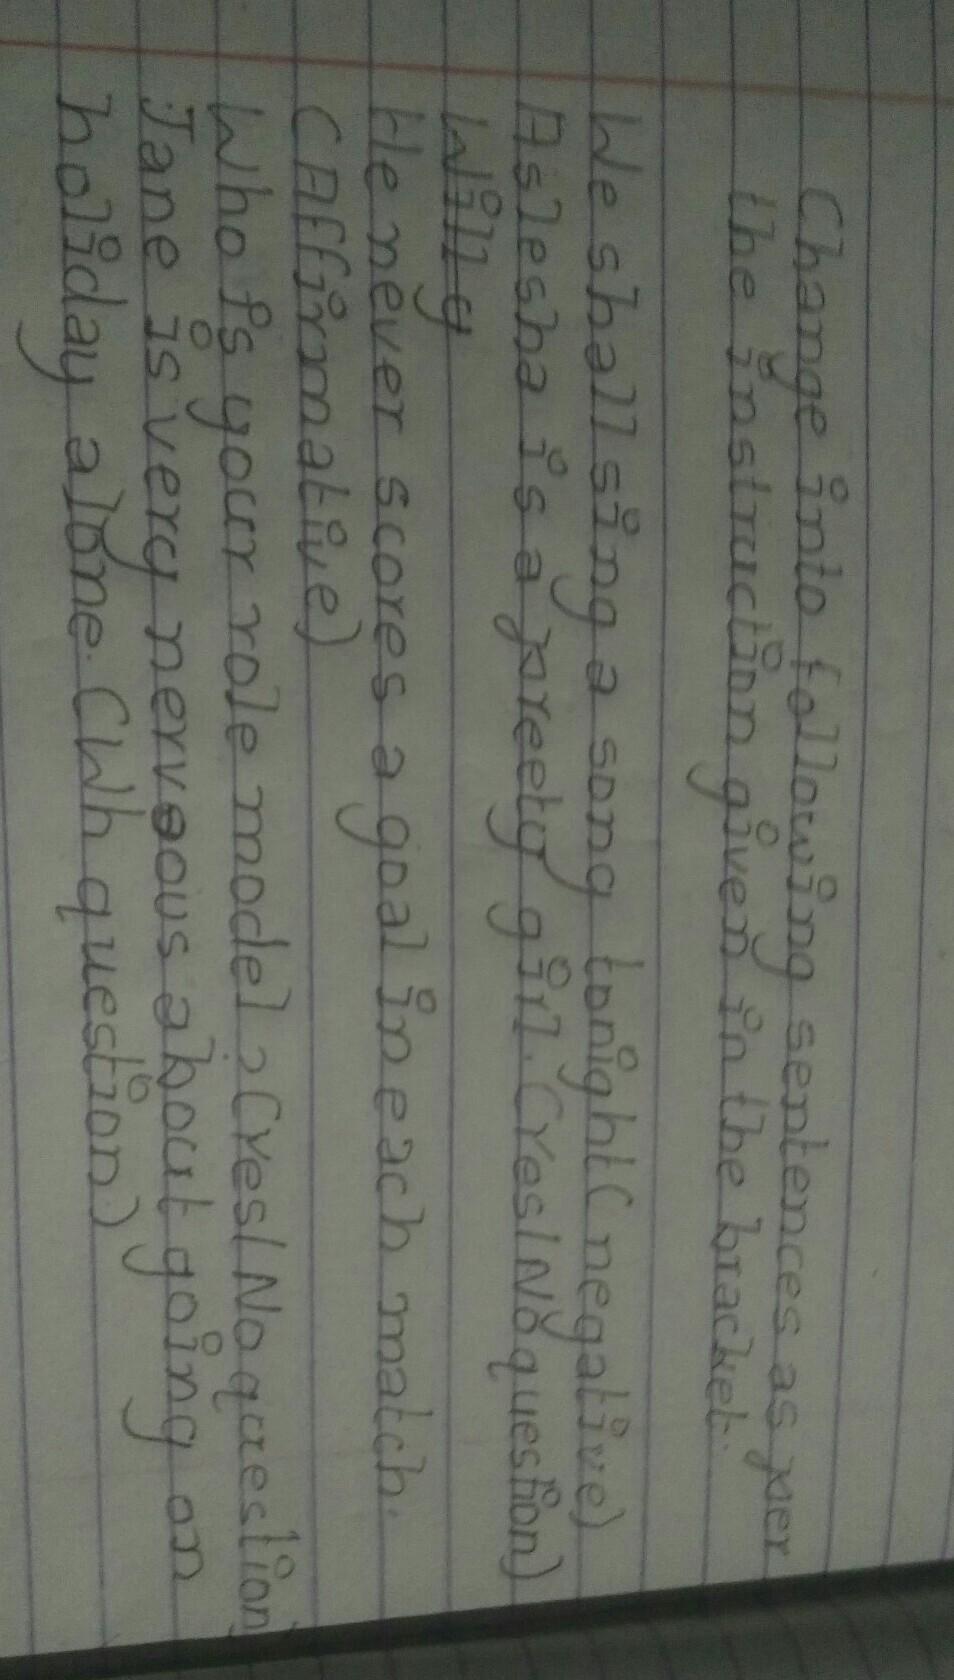 Change into following sentences as per
the instruction given in the bracket.
We shall sing a song tonight (negative)
Aslesha is a preety girl. (Yes/No question)
Willy
He never scores a goal in each match.
(Affirmative)
Who is your role model? (Yes/No question
Jane is very nervsous about going on
holiday alone. (Wh question)